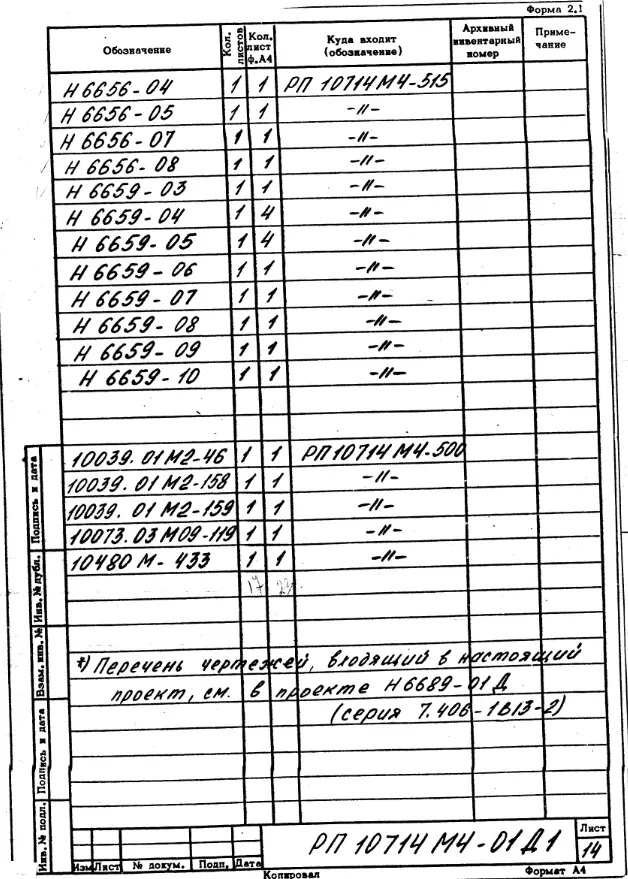 Форма 2.1
Обозначение | Кол. листов | Кол. лист ф.А4 | Куда входит (обозначение) | Архивный инвентарный номер | Приме-чание
Н 6656-04 1 1 РП 10714М4-515
Н 6656-05 1 1 -//-
Н 6656-07 1 1 -//-
Н 6656-08 1 1 -//-
Н 6659-03 1 1 -//-
Н 6659-04 1 4 -//-
Н 6659-05 1 4 -//-
Н 6659-06 1 1 -//-
Н 6659-07 1 1 -//-
Н 6659-08 1 1 -//-
Н 6659-09 1 1 -//-
Н 6659-10 1 1 -//-
10039.01М2-46 1 1 РП10714М4-500
10039.01М2-158 1 1 -//-
10039.01М2-159 1 1 -//-
10073.03М09-119 1 1 -//-
10480М-433 1 1 -//-
17
*) Перечень чертежей, входящий в настоящий
проект, см. в проекте Н6689-01Д
(серия 7.406-1В13-2)
Инв. № подл. Подпись и дата Взам. инв. № Инв. № дубл. Подпись и дата
РП 10714М4-01Д1
Лист
14
Изм Лист № докум. Подп. Дата
Копировал
Формат А4